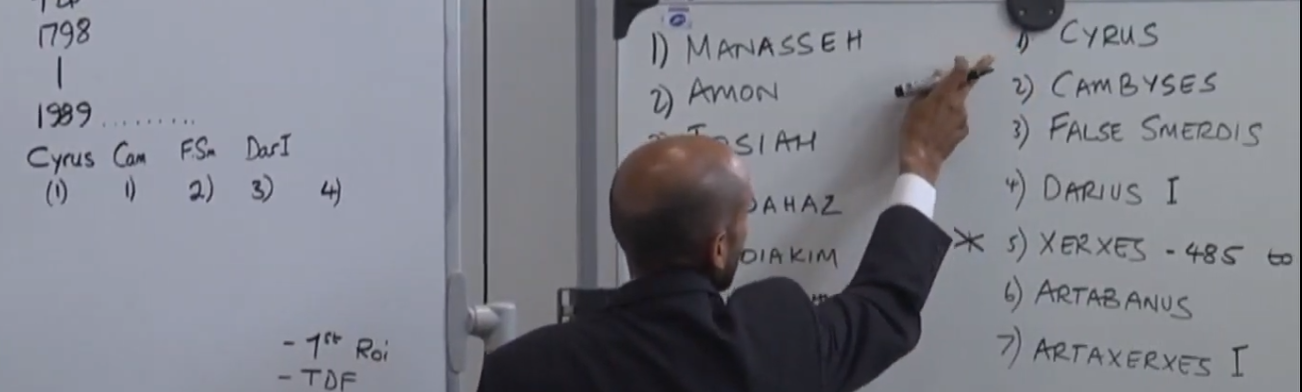 1798
1989.........
Cyrus Cam F.Sm DarI
(1) 1) 2) 3) 4)
- 1st Roi
- TDF
1) MANASSEH
2) AMON
SIAH
AHAZ
OIAKIM
1) CYRUS
2) CAMBYSES
3) FALSE SMERDIS
4) DARIUS I
* 5) XERXES - 485 to
6) ARTABANUS
7) ARTAXERXES I